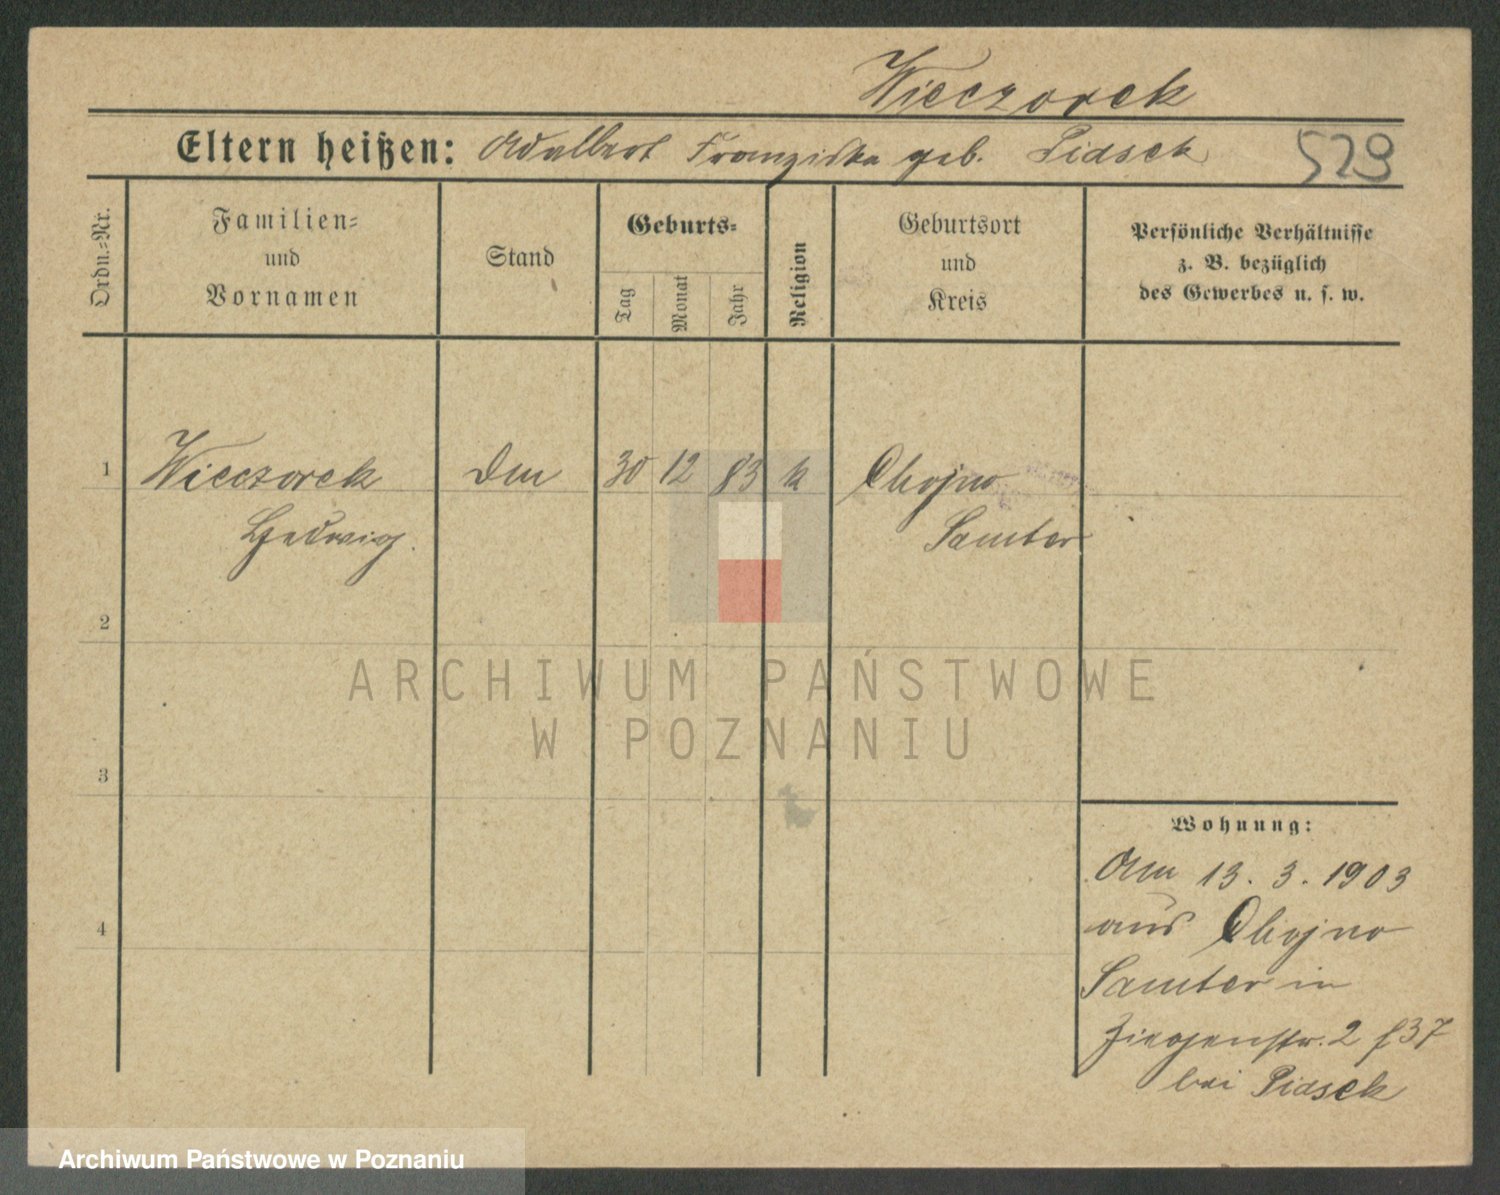 Wieczorek
Eltern heißen: Adalbert Franziska geb. Piasek
529
Ordn.=Nr.
Familien=
und
Vornamen
Stand
Geburts=
Tag
Monat
Jahr
Religion
Geburtsort
und
Kreis
Persönliche Verhältnisse
z. B. bezüglich
des Gewerbes u. s. w.
1 Wieczorek 30 12 83 k Chojno
Hedwig. Samter
2
3
4
ARCHIWUM PAŃSTWOWE
W POZNANIU
Wohnung:
Am 13. 3. 1903
aus Chojno
Samter in
Ziegenstr. 2
bei Piasek
Archiwum Państwowe w Poznaniu